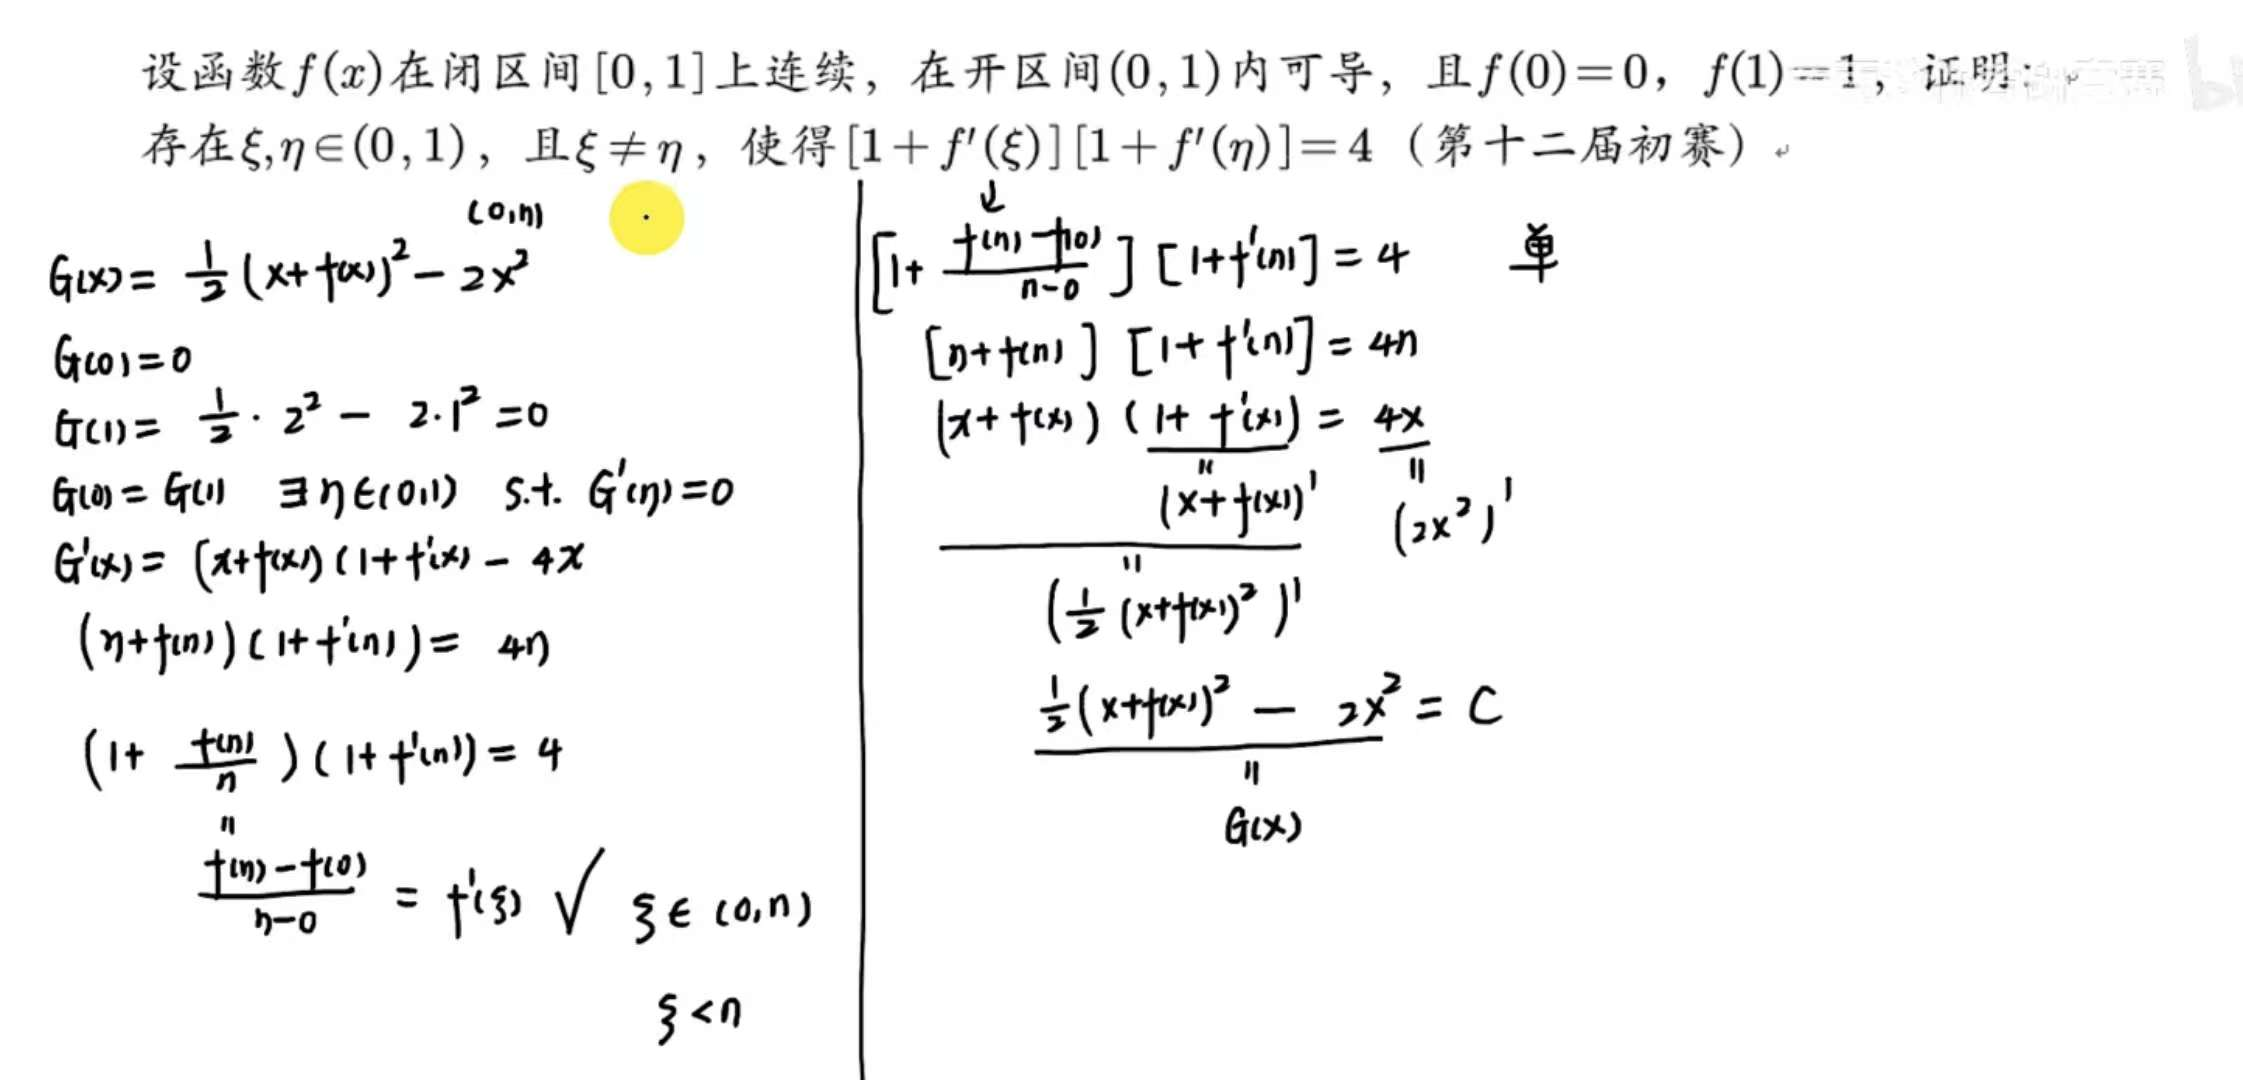 设函数f(x)在闭区间[0,1]上连续，在开区间(0,1)内可导，且f(0)=0，f(1)=1，证明：
存在ξ,η∈(0,1)，且ξ≠η，使得[1+f′(ξ)][1+f′(η)]=4（第十二届初赛）
(0,η)
G(x)= 1/2 (x+f(x))² − 2x²
G(0)=0
G(1)= 1/2 · 2² − 2·1² =0
G(0)=G(1) ∃η∈(0,1) s.t. G′(η)=0
G′(x)= (x+f(x))(1+f′(x) − 4x
(η+f(η))(1+f′(η))= 4η
(1+ f(η)/η )(1+f′(η))= 4
=
(f(η)−f(0))/(η−0) = f′(ξ) √ ξ∈(0,η)
ξ<η
↓
[1+ (f(η)−f(0))/(η−0) ][1+f′(η)]=4 单
[η+f(η)] [1+f′(η)]=4η
(x+f(x))(1+f′(x))= 4x
= =
(x+f(x))′ (2x²)′
=
(1/2 (x+f(x))²)′
1/2 (x+f(x))² − 2x² = C
=
G(x)